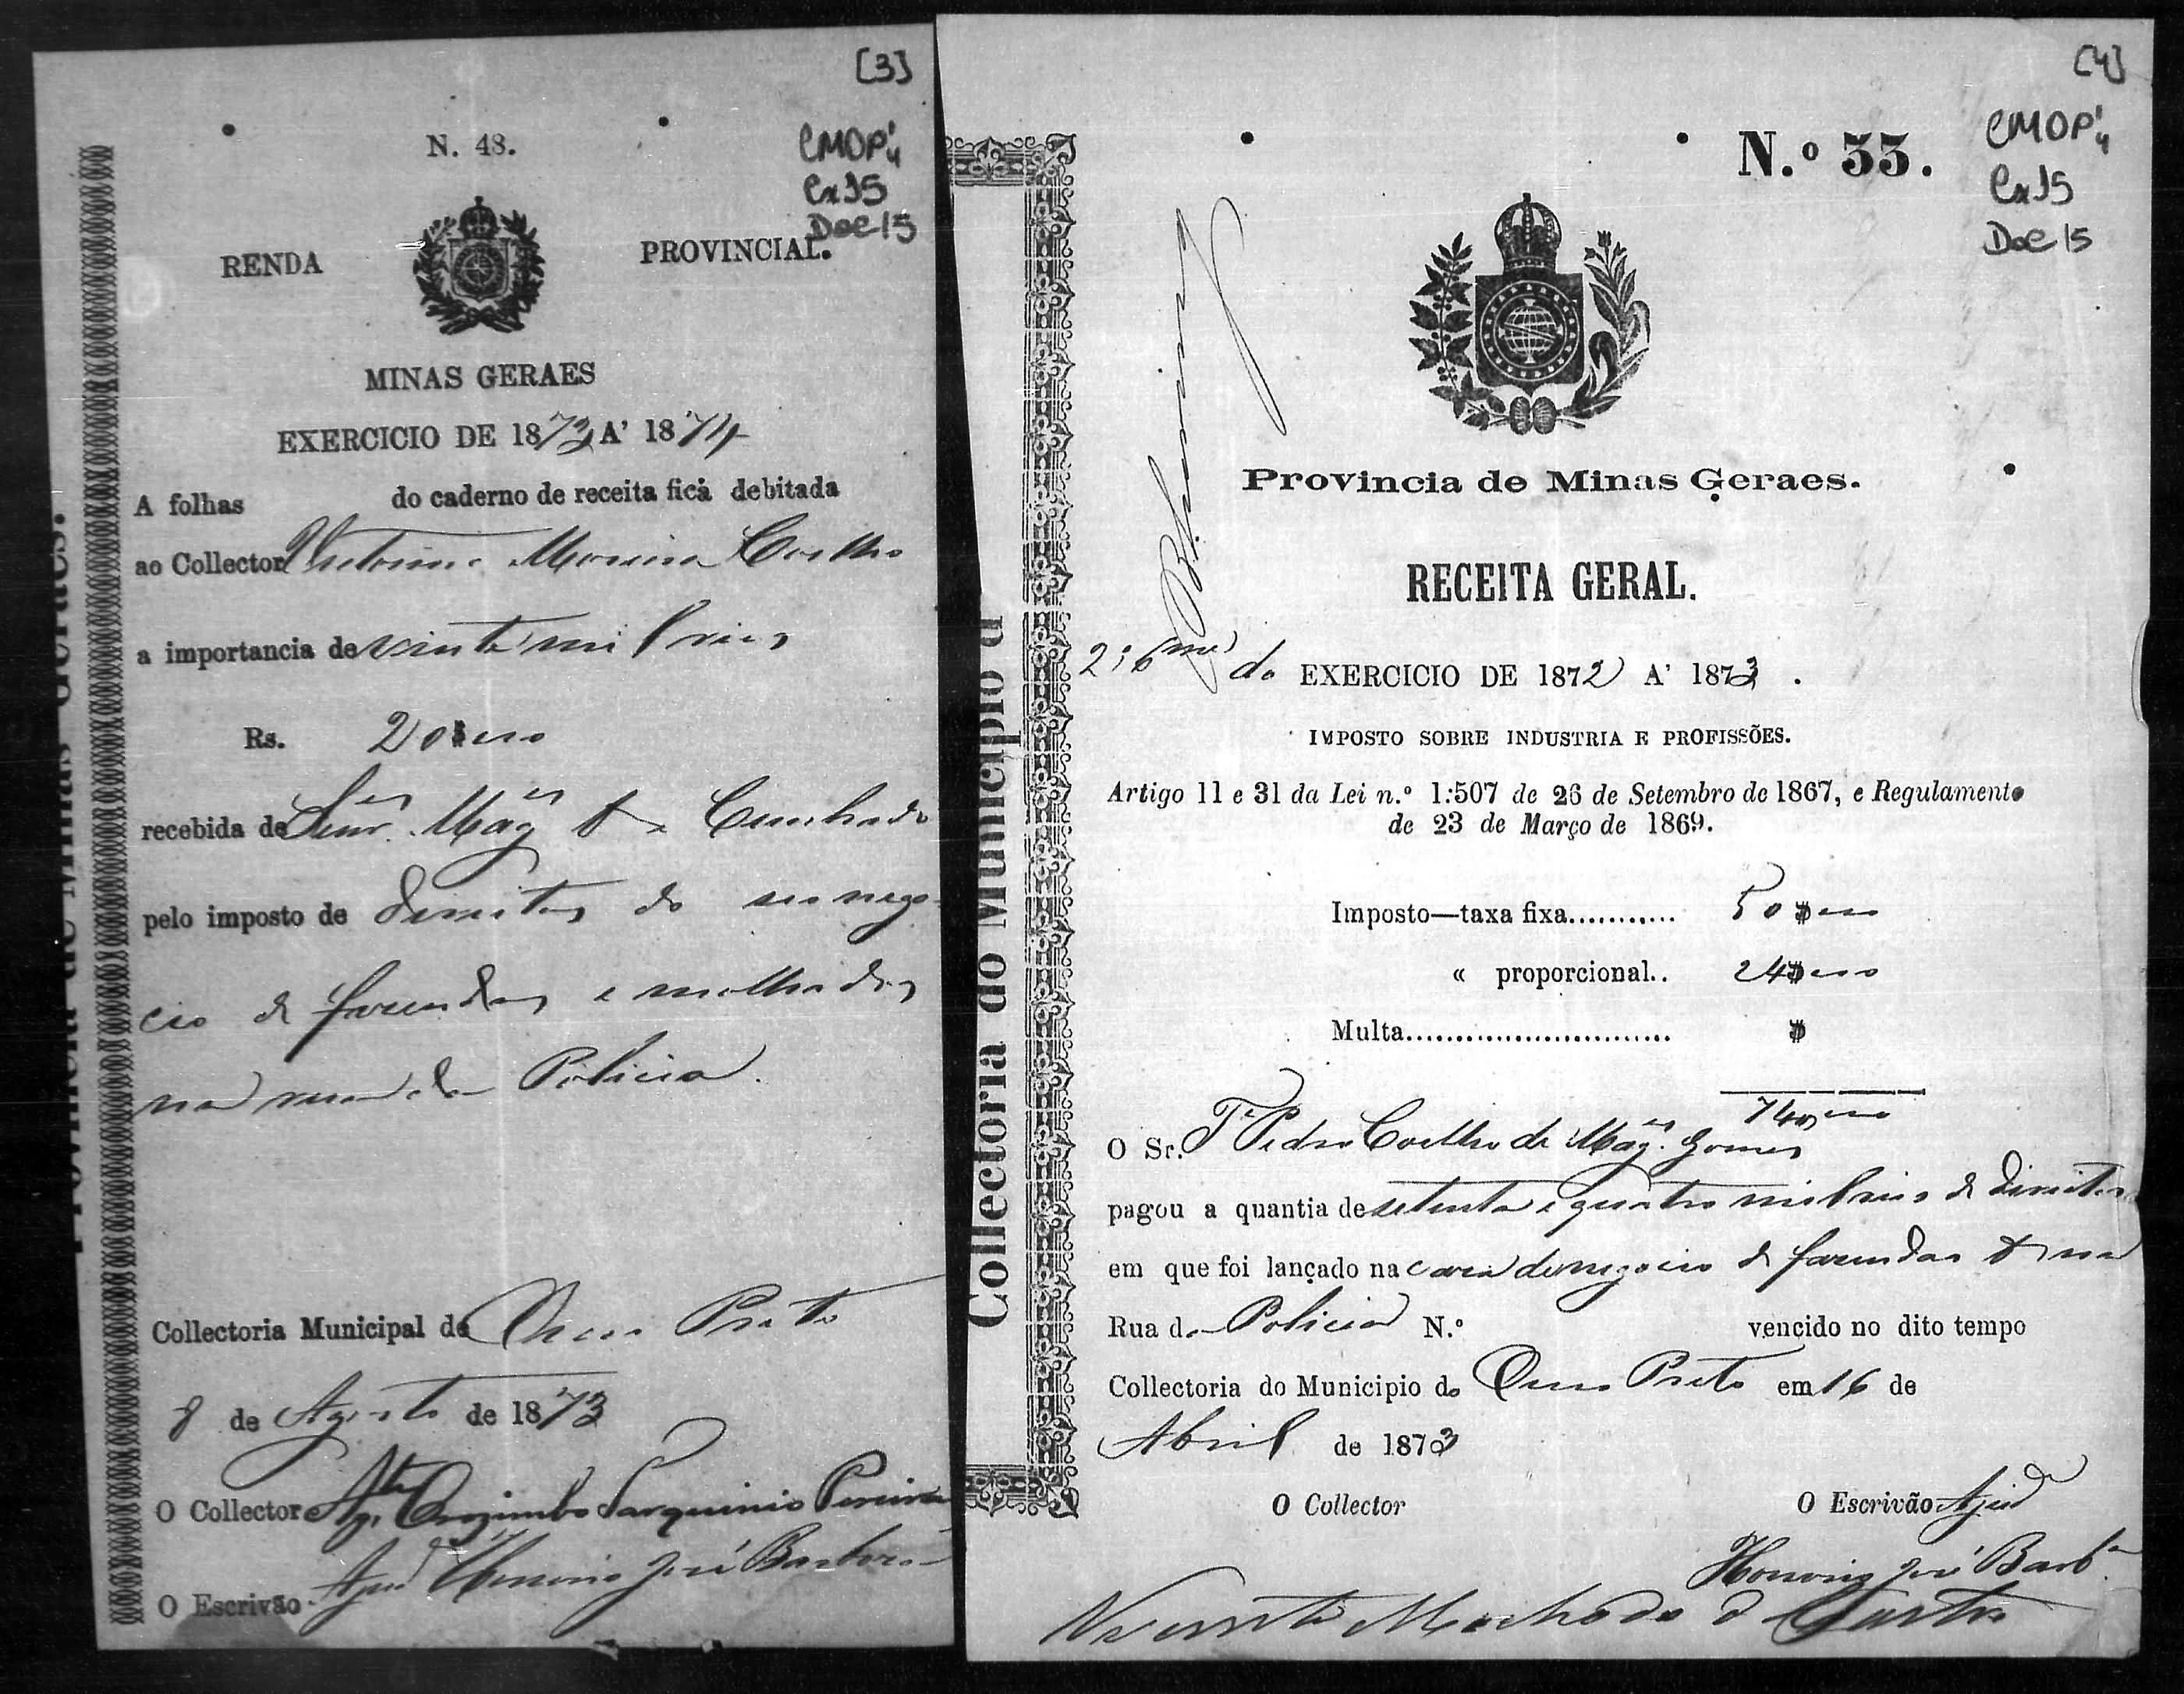 [3]
CMOP'4
Cx 15
Doc 15
N. 48.
RENDA PROVINCIAL.
MINAS GERAES
EXERCICIO DE 1873 A' 1874
A folhas do caderno de receita fica debitada
ao Collector Moreira Coelho
a importancia de vinte mil reis
Rs. 20$
recebida de Cunhado
pelo imposto de direitos do seu nego-
cio de fazendas e molhados
na rua da Policia.
Collectoria Municipal de Ouro Preto
8 de Agosto de 1873
O Collector Orozimbo Tarquinio Pereira
O Escrivão Ajud Honorio José Barbosa
Provincia de Minas Geraes.
[4]
CMOP'4
Cx 15
Doc 15
N.º 33.
Provincia de Minas Geraes.
RECEITA GERAL.
do EXERCICIO DE 1872 A' 1873.
IMPOSTO SOBRE INDUSTRIA E PROFISSÕES.
Artigo 11 e 31 da Lei n.º 1:507 de 26 de Setembro de 1867, e Regulamento
de 23 de Março de 1869.
Imposto—taxa fixa........... 50$
« proporcional.. 24$
Multa........................... $
74$
O Sr. Te Pedro Coelho de Mages Gomes
pagou a quantia de setenta e quatro mil reis de direitos
em que foi lançado na casa de negocio de fazendas & na
Rua da Policia N.º vencido no dito tempo
Collectoria do Municipio do Ouro Preto em 16 de
Abril de 1873
O Collector O Escrivão Ajud
Honorio José Barba
Vicente Machado de Castro
Collectoria do Municipio d